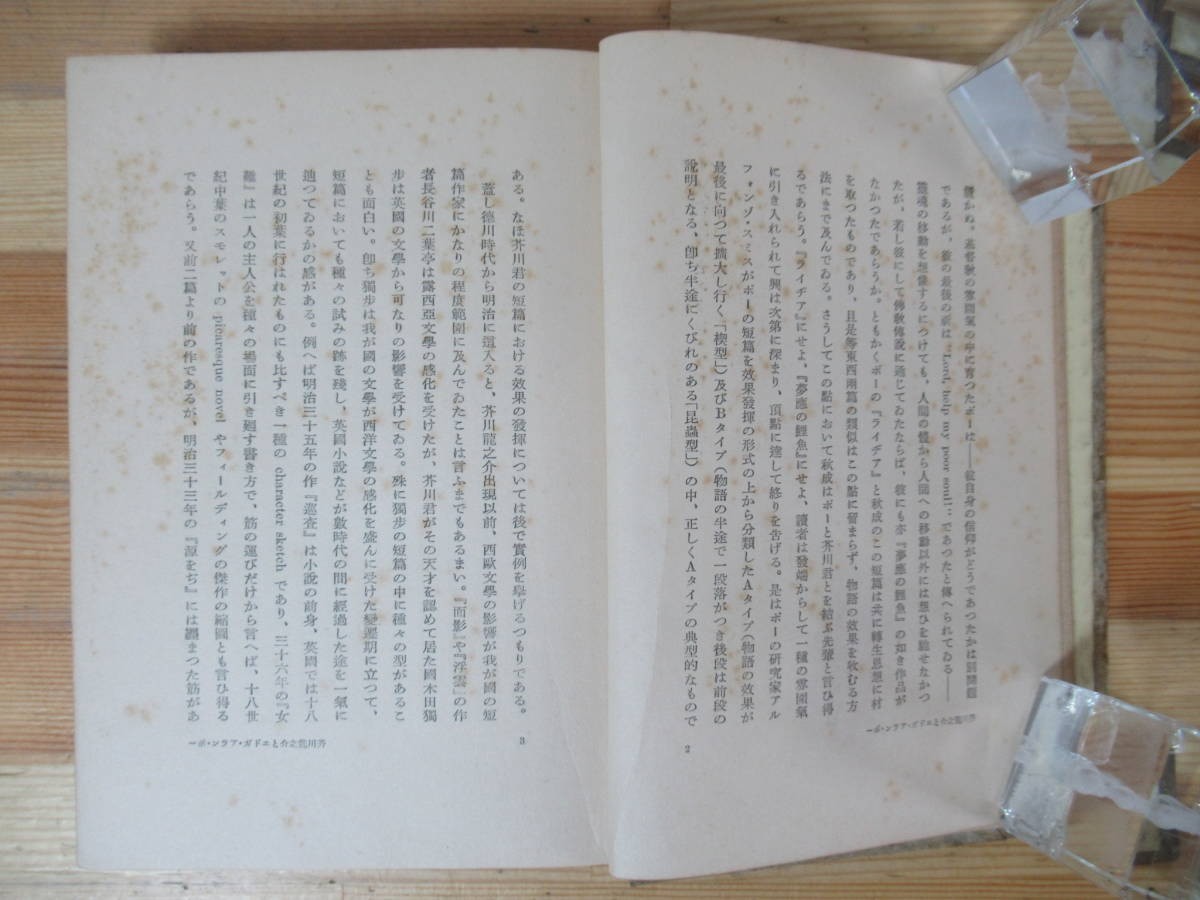 續かぬ。基督敎の雰圍氣の中に育つたポーは――彼自身の信仰がどうであつたかは別問題
であるが、彼の最後の祈は "Lord, help my poor soul!" であつたと傳へられてゐる――
靈魂の移動を想像するにつけても、人間の體から人間への移動以外には想ひを馳せなかつ
たが、若し彼にして佛敎傳說に通じてゐたならば、彼にも亦『夢應の鯉魚』の如き作品が
なかつたであらうか。ともかくポーの『ライヂア』と秋成のこの短篇は共に轉生思想に材
を取つたものであり、且是等東西兩篇の類似はこの點に留まらず、物語の效果を收むる方
法にまで及んでゐる。さうしてこの點において秋成はポーと芥川君とを結ぶ先輩と言ひ得
るであらう。『ライヂア』にせよ、『夢應の鯉魚』にせよ、讀者は發端からして一種の雰圍氣
に引き入れられて興は次第に深まり、頂點に達して終りを告げる。是はポーの硏究家アル
フォンゾ・スミスがポーの短篇を效果發揮の形式の上から分類したAタイプ(物語の效果が
最後に向つて擴大し行く「楔型」)及びBタイプ(物語の半途で一段落がつき後段は前段の
說明となる、卽ち半途にくびれのある「昆蟲型」)の中、正しくAタイプの典型的なもので
芥川龍之介とエドガ・アラン・ポー
2
ある。なほ芥川君の短篇における效果の發揮については後で實例を擧げるつもりである。
蓋し德川時代から明治に這入ると、芥川龍之介出現以前、西歐文學の影響が我が國の短
篇作家にかなりの程度範圍に及んでゐたことは言ふまでもあるまい。『面影』や『浮雲』の作
者長谷川二葉亭は露西亞文學の感化を受けたが、芥川君がその天才を認めて居た國木田獨
步は英國の文學から可なりの影響を受けてゐる。殊に獨步の短篇の中に種々の型があるこ
とも面白い。卽ち獨步は我が國の文學が西洋文學の感化を盛んに受けた變遷期に立つて、
短篇においても種々の試みの跡を殘し、英國小說などが數時代の間に經過した途を一氣に
辿つてゐるかの感がある。例へば明治三十五年の作『巡査』は小說の前身、英國では十八
世紀の初葉に行はれたものにも比すべき一種の character sketch であり、三十六年の『女
難』は一人の主人公を種々の場面に引き廻す書き方で、筋の運びだけから言へば、十八世
紀中葉のスモレットの picaresque novel やフィールディングの傑作の縮圖とも言ひ得る
であらう。又前二篇より前の作であるが、明治三十三年の『源をぢ』には纏まつた筋があ
芥川龍之介とエドガ・アラン・ポー
3